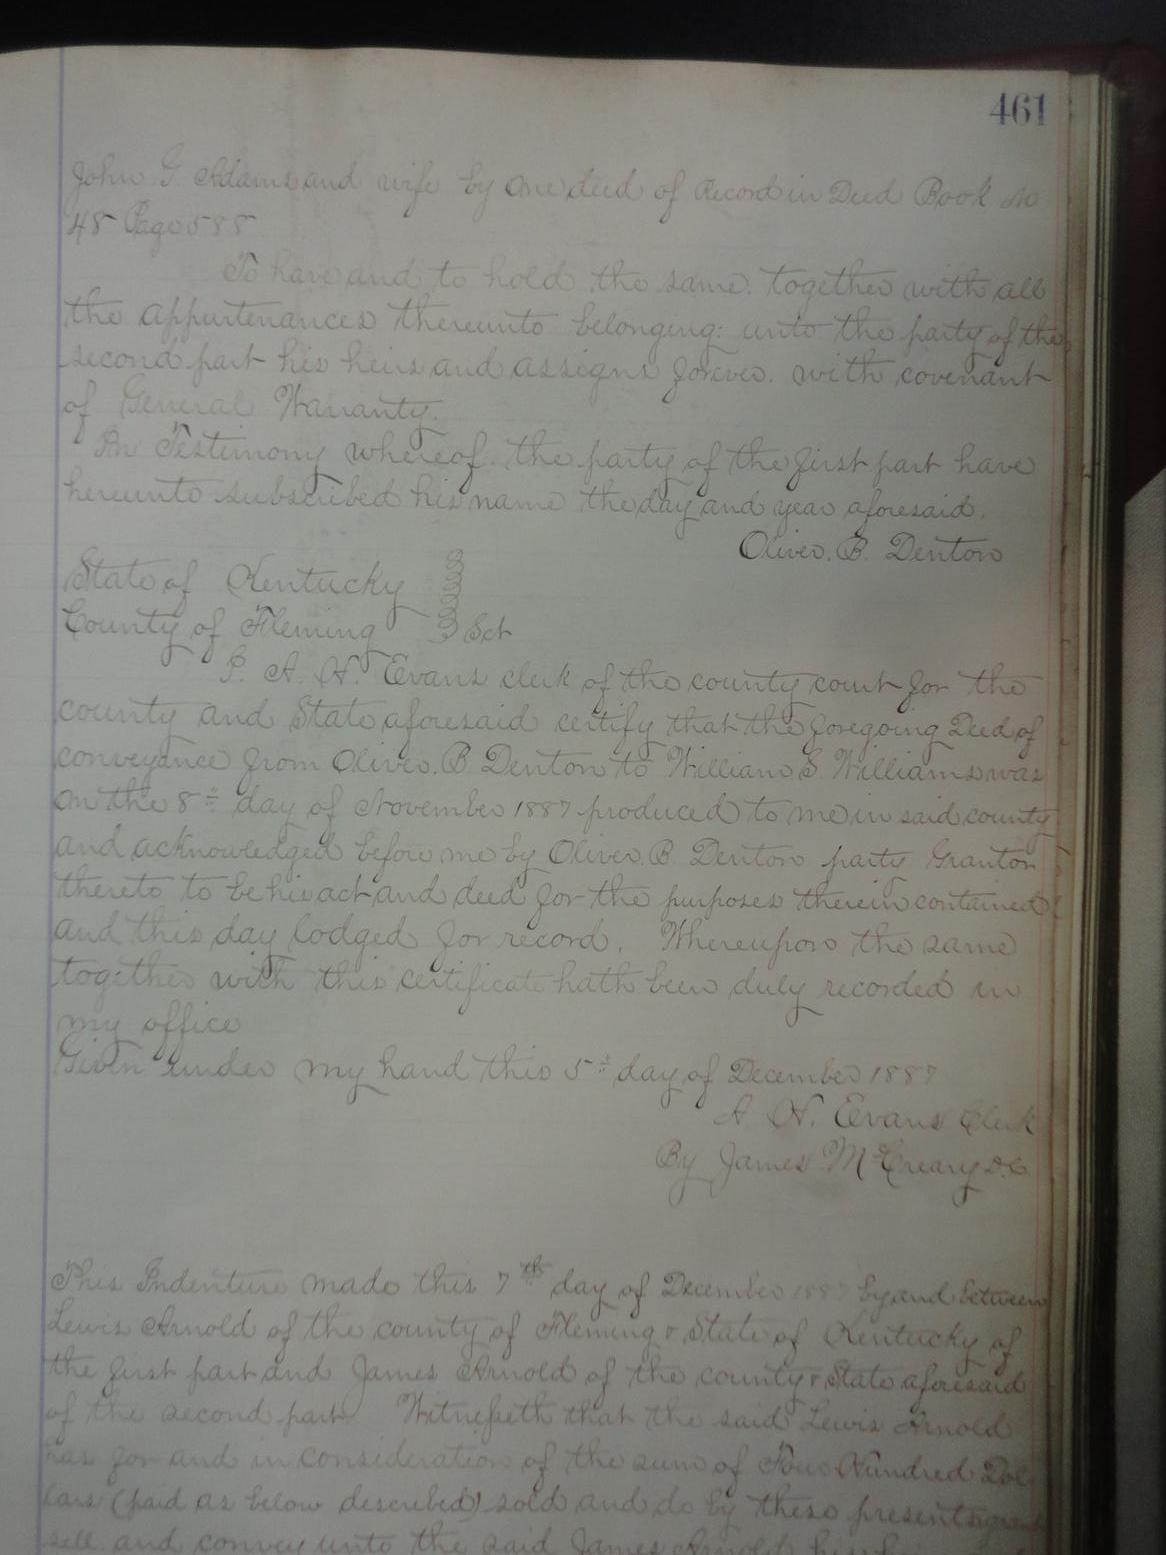 461
John G Adams and wife by one deed of Record in Deed Book No
48 Page 588
To have and to hold the same. together with all
the appurtenances thereunto belonging: unto the party of the
second part his heirs and assigns forever. with covenant
of General Warranty.
In Testimony whereof. the party of the first part have
hereunto subscribed his name the day and year aforesaid.
Oliver. B. Denton
State of Kentucky
County of Fleming Sct
I. A. H. Evans clerk of the county court for the
county and State aforesaid certify that the foregoing Deed of
conveyance from Oliver. B Denton to William S. Williams was
on the 8th day of November 1887 produced to me in said county
and acknowledged before me by Oliver B. Denton party Grantor
thereto to be his act and deed for the purposes therein contained
and this day lodged for record. Whereupon the same
together with this certificate hath been duly recorded in
my office
Given under my hand this 5th day of December 1887
A H. Evans Clerk
By James McCreary D.C.
This Indenture made this 7th day of December 1887 by and between
Lewis Arnold of the county of Fleming & State of Kentucky of
the first part and James Arnold of the county & State aforesaid
of the second part Witnesseth that the said Lewis Arnold
has for and in consideration of the sum of Four Hundred Dol
lars (paid as below described) sold and do by these presents grant
sell and convey unto the said James Arnold